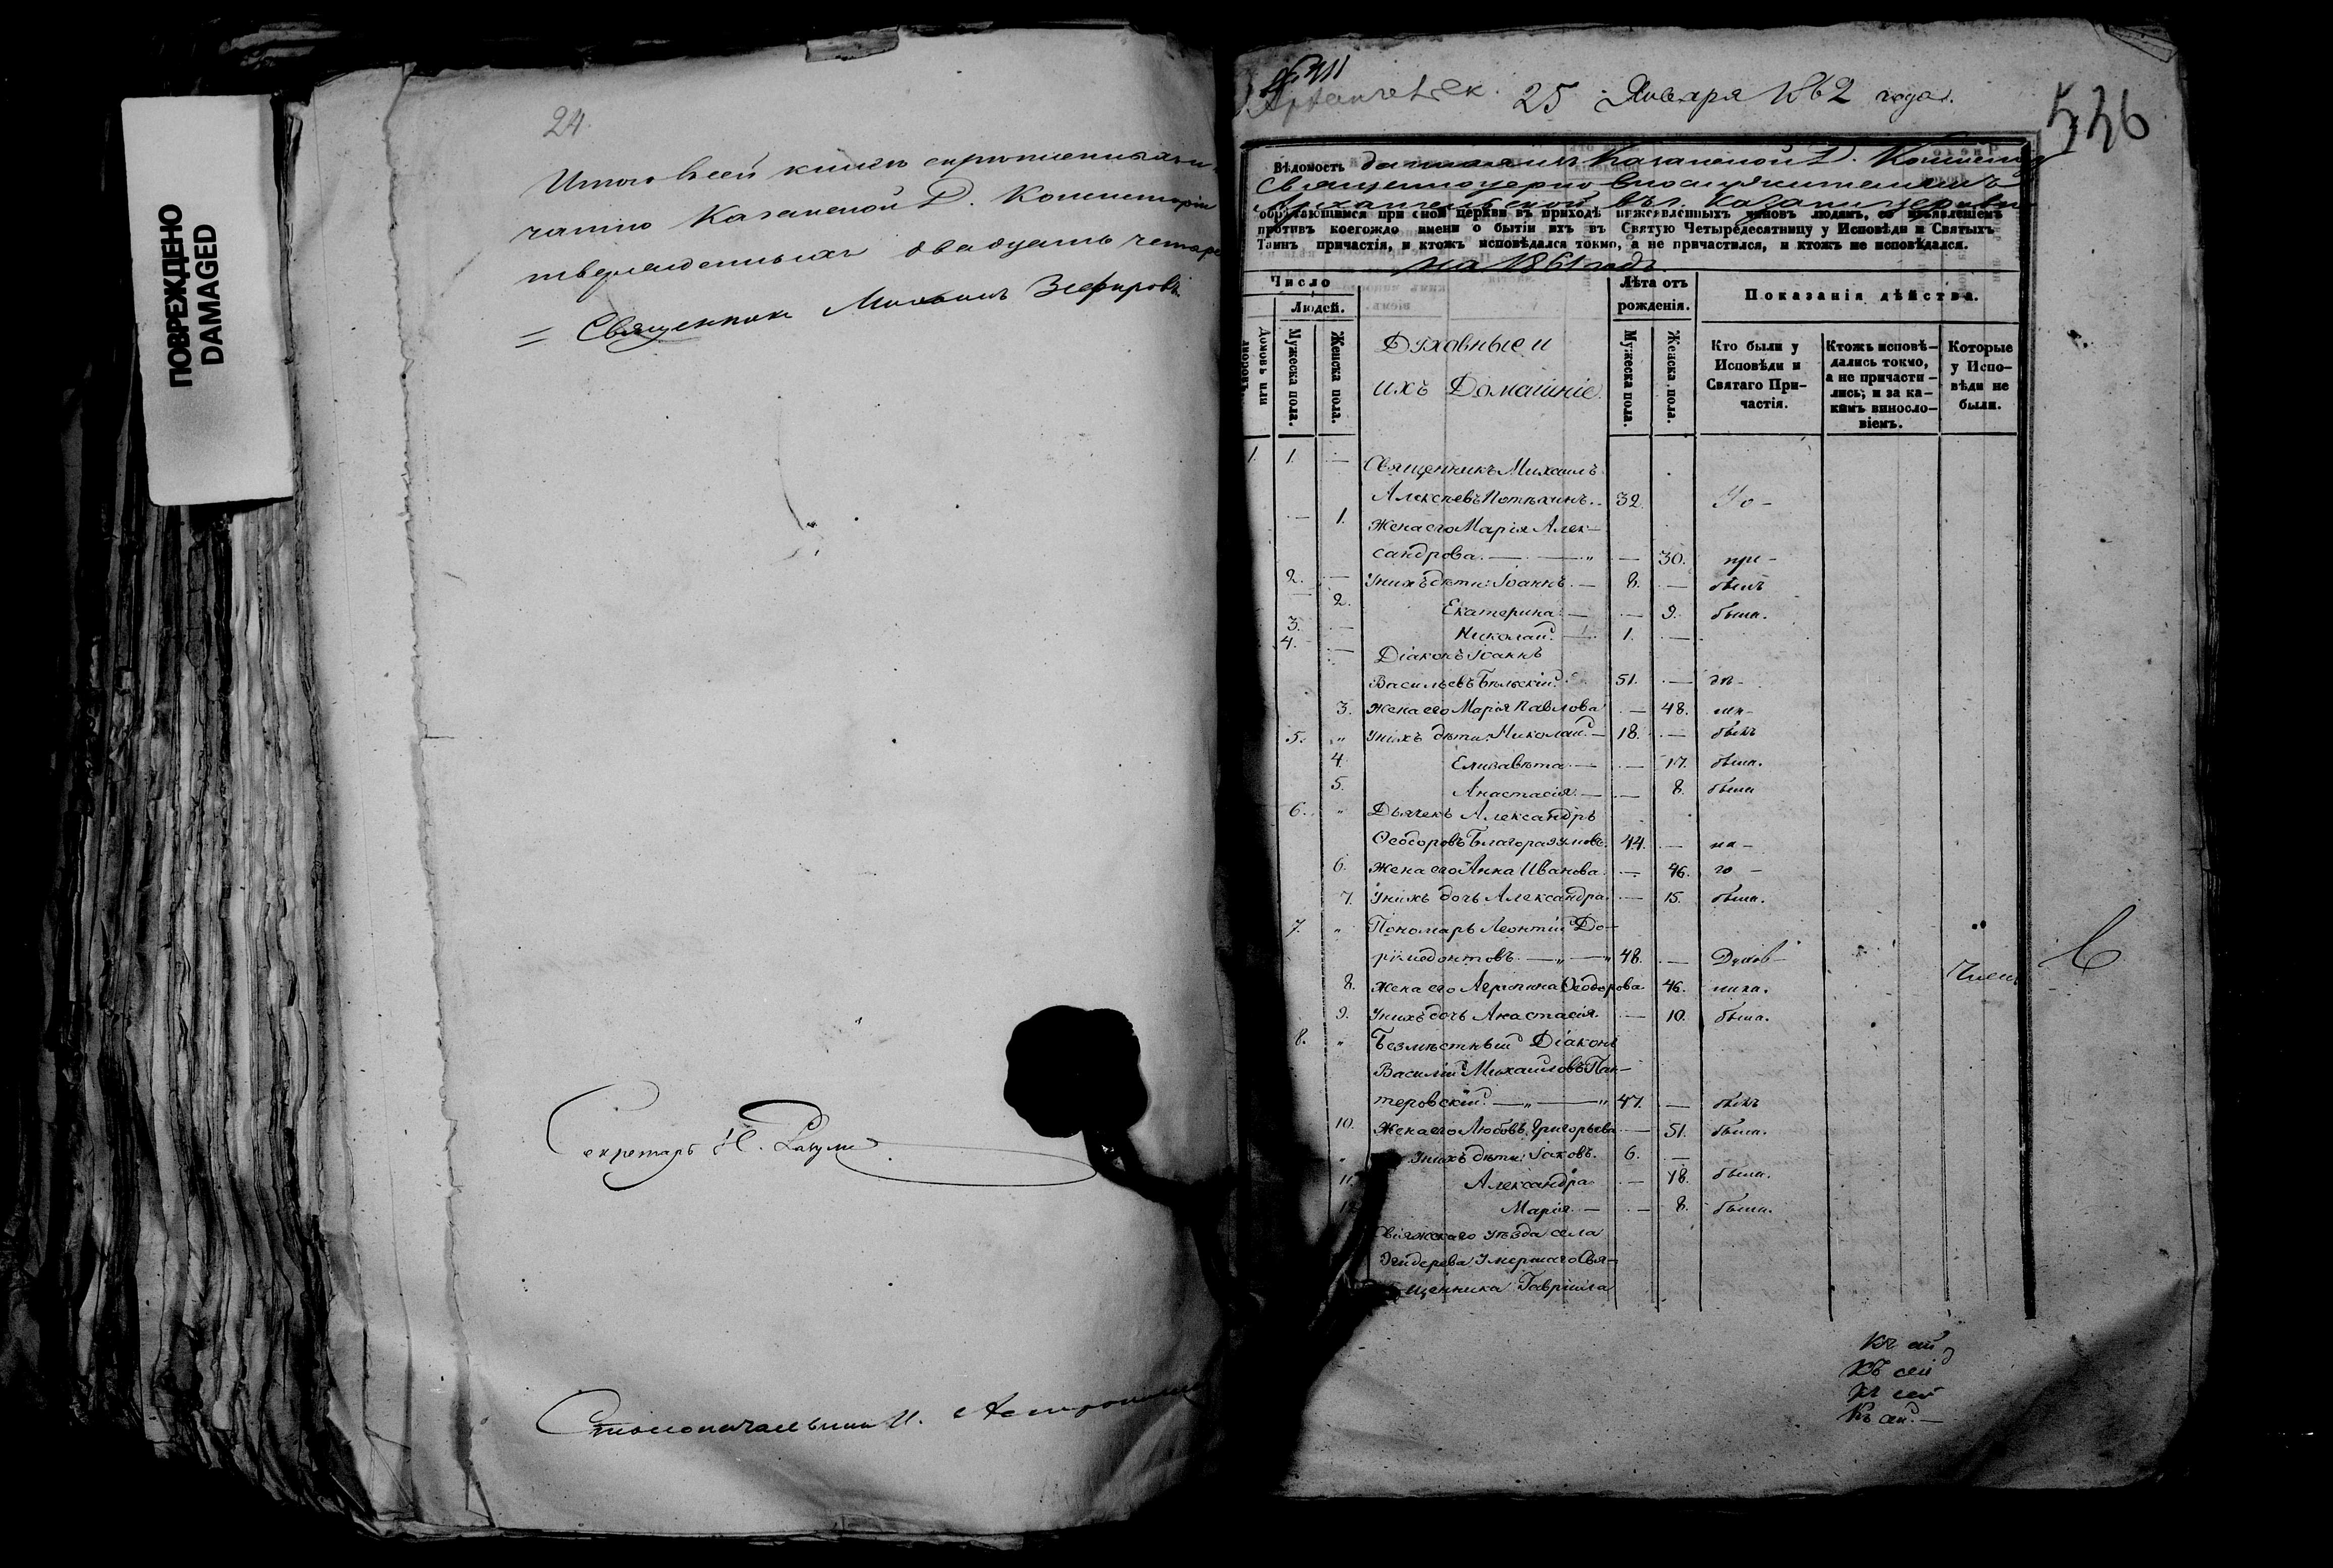 ПОВРЕЖДЕНО
DAMAGED
24.
Итого всей книги скрѣпленных
Казанской Д. Консисторіи
двадцать четыре
Священник Михаилъ Зефировъ
Секретарь Н.
Столоначальник И.
25 Января 1862 года.
536
Вѣдомость данная изъ Казанской Д. Консисторіи
Священноцерковнослужителямъ
Архангельской въ г. Казани церкви
обрѣтающимся при оной церкви въ приходѣ нижеявленныхъ чиновъ людямъ, съ изъявленіемъ
противъ коегождо имени о бытіи ихъ въ Святую Четыредесятницу у Исповѣди и Святыхъ
Таинъ причастія, и ктожъ исповѣдался токмо, а не причастился, и ктожъ не исповѣдался.
на 1861 годъ.
Число
Людей.
Лѣта отъ рожденія.
Показанія дѣйства.
Домовъ или дворовъ
Мужеска пола.
Женска пола.
Духовные и
ихъ Домашніе.
Мужеска пола.
Женска пола.
Кто были у Исповѣди и Святаго При-частія.
Ктожъ исповѣ-дались токмо, а не причасти-лись; и за ка-кимъ винослo-віемъ.
Которые у Испо-вѣди не были.
1. 1. — Священникъ Михаилъ
Алексѣевъ Потѣхинъ. 32.
— 1. Жена его Марія Алек-
сандрова. — — 30. при-
2. — У нихъ дѣти: Іоаннъ. — 8. — былъ
2. Екатерина. — — 9. была.
3. — Николай. 1. —
4. — Діаконъ Іоаннъ
Васильевъ Бѣльскій. 51. —
3. Жена его Марія Павлова — 48.
5. " У нихъ дѣти: Николай. — 18. — былъ
4. Елизавета. — — 17. была.
5. Анастасія. — — 8. была
6. " Дьячекъ Александръ
Ѳеодоровъ Благоразумовъ. 44. —
6. Жена его Анна Иванова. — 46. го —
7. У нихъ дочь Александра. — 15. была.
7. " Пономарь Леонтій До-
римедонтовъ. — " — " 48. — Духов-
8. Жена его Агрипина Ѳеодорова 46. ника.
9. У нихъ дочь Анастасія. — 10. была.
8. " Безмѣстный Діаконъ
Василій Михайловъ Пан-
теровскій. — " — " 47. — былъ
10. Жена его Любовь Григорьева — 51. была.
У нихъ дѣти: Іаковъ. 6. —
11. Александра — 18. была.
12. Марія. — — 8. была.
Свіяжскаго уѣзда села
умершаго Свя-
щенника Гавріила
Къ сей
Къ сей
Къ сей
Къ сей. —